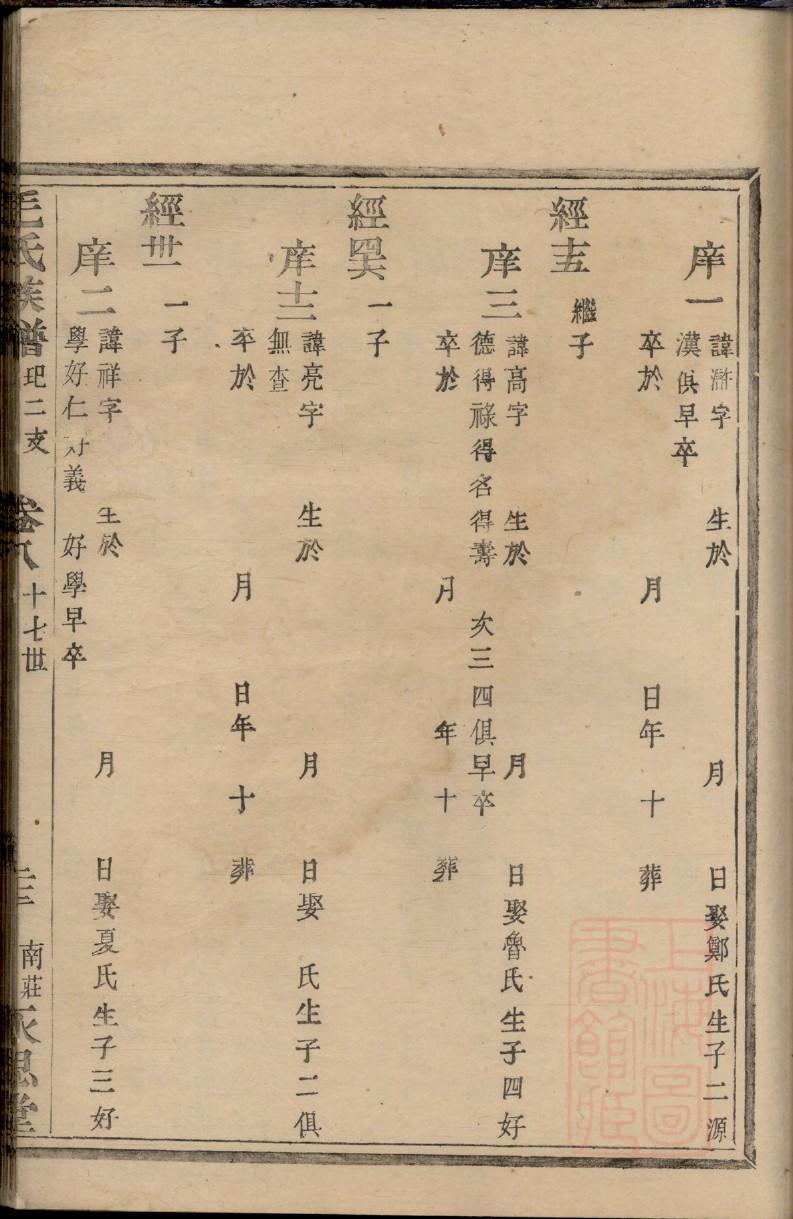 庠一
諱滸字 生於 月 日娶鄭氏生子二源
漢俱早卒
卒於 月 日年 十 葬
經十五 繼子
庠三
諱高字 生於 月 日娶魯氏生子四好
德得祿得名得壽 次三四俱早卒
卒於 月 年十 葬
經四六 一子
庠十三
諱亮字 生於 月 日娶 氏生子二俱
無查
卒於 月 日年 十 葬
經卅一 一子
庠二
諱祥字 生於 月 日娶夏氏生子三好
學好仁 義 好學早卒
毛氏族譜 玘二支 卷八 十七世 南莊永思堂
上海圖書館藏